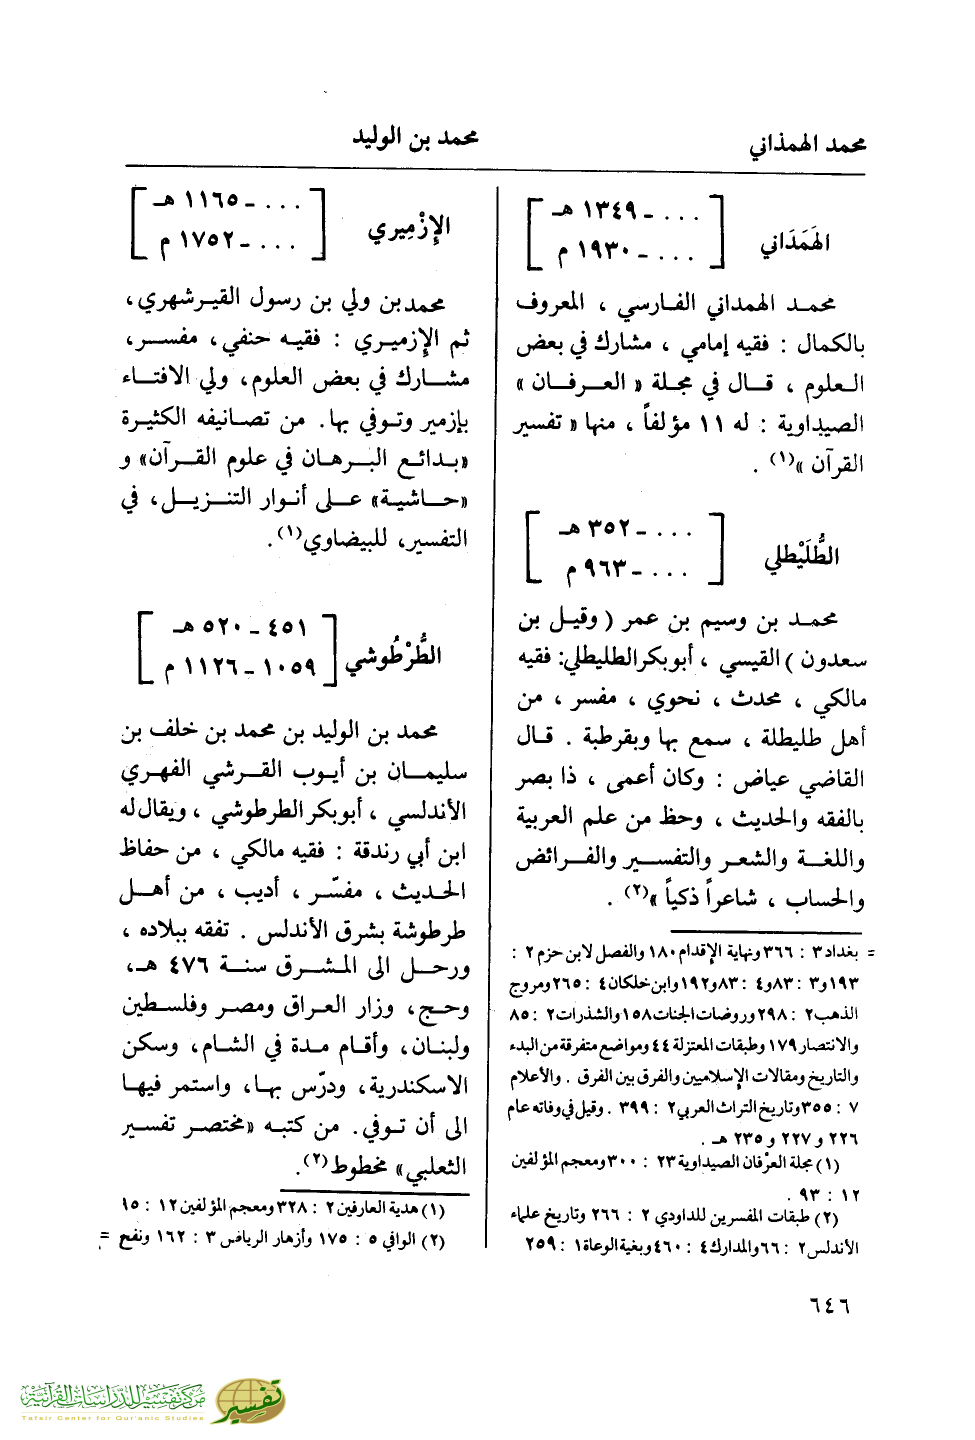 محمد الهمذاني
محمد بن الوليد
الهَمَدَاني
... ـ ١٣٤٩ هـ
... ـ ١٩٣٠ م
محمد الهمداني الفارسي ، المعروف
بالكمال : فقيه إمامي ، مشارك في بعض
العلوم ، قال في مجلة « العرفان »
الصيداوية : له ١١ مؤلفاً ، منها « تفسير
القرآن »(١) .
الطُّلَيْطلي
... ـ ٣٥٢ هـ
... ـ ٩٦٣ م
محمد بن وسيم بن عمر ( وقيل بن
سعدون ) القيسي ، أبوبكر الطليطلي: فقيه
مالكي ، محدث ، نحوي ، مفسر ، من
أهل طليطلة ، سمع بها وبقرطبة . قال
القاضي عياض : وكان أعمى ، ذا بصر
بالفقه والحديث ، وحظ من علم العربية
واللغة والشعر والتفسير والفرائض
والحساب ، شاعراً ذكياً »(٢) .
= بغداد ٣ : ٣٦٦ ونهاية الإقدام ١٨٠ والفصل لابن حزم ٢ :
١٩٣ و٣ : ٨٣ و٤ : ٨٣ و١٩٢ وابن خلكان ٤ : ٢٦٥ ومروج
الذهب ٢ : ٢٩٨ وروضات الجنات ١٥٨ والشذرات ٢ : ٨٥
والانتصار ١٧٩ وطبقات المعتزلة ٤٤ ومواضع متفرقة من البدء
والتاريخ ومقالات الإسلاميين والفرق بين الفرق . والأعلام
٧ : ٣٥٥ وتاريخ التراث العربي ٢ : ٣٩٩ . وقيل في وفاته عام
٢٢٦ و ٢٢٧ و ٢٣٥ هـ .
(١) مجلة العرْفان الصيداوية ٢٣ : ٣٠٠ ومعجم المؤلفين
١٢ : ٩٣ .
(٢) طبقات المفسرين للداودي ٢ : ٢٦٦ وتاريخ علماء
الأندلس ٢ : ٦٦ والمدارك ٤ : ٤٦٠ وبغية الوعاة ١ : ٢٥٩
الإزْمِيري
... ـ ١١٦٥ هـ
... ـ ١٧٥٢ م
محمد بن ولي بن رسول القيرشهري،
ثم الإزميري : فقيه حنفي، مفسر،
مشارك في بعض العلوم، ولي الافتاء
بإزمير وتوفي بها. من تصانيفه الكثيرة
«بدائع البرهان في علوم القرآن» و
«حاشية» على أنوار التنزيل، في
التفسير، للبيضاوي(١).
الطُّرْطُوشي
٤٥١ ـ ٥٢٠ هـ
١٠٥٩ ـ ١١٢٦ م
محمد بن الوليد بن محمد بن خلف بن
سليمان بن أيوب القرشي الفهري
الأندلسي ، أبوبكر الطرطوشي ، ويقال له
ابن أبي رندقة : فقيه مالكي ، من حفاظ
الحديث ، مفسّر ، أديب ، من أهل
طرطوشة بشرق الأندلس . تفقه ببلاده ،
ورحل الى المشرق سنة ٤٧٦ هـ،
وحج، وزار العراق ومصر وفلسطين
ولبنان، وأقام مدة في الشام، وسكن
الاسكندرية، ودرّس بها، واستمر فيها
الى أن توفي. من كتبه «مختصر تفسير
الثعلبي» مخطوط(٢).
(١) هدية العارفين ٢ : ٣٢٨ ومعجم المؤلفين ١٢ : ١٥
(٢) الوافي ٥ : ١٧٥ وأزهار الرياض ٣ : ١٦٢ ونفح =
٦٤٦
مركز تفسير للدراسات القرآنية
Tafsir Center for Qur'anic Studies
تفسير